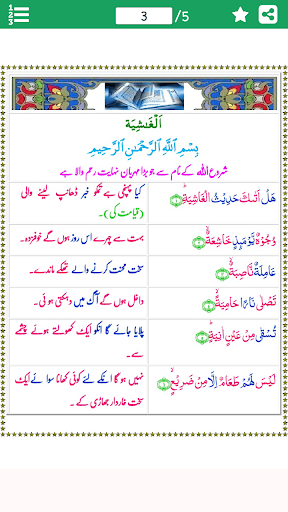 3 /5
اَلْغَاشِيَة
بِسْمِ ٱللَّهِ ٱلرَّحْمَٰنِ ٱلرَّحِيمِ
شروع اللہ کے نام سے جو بڑا مہربان نہایت رحم والا ہے
هَلْ اَتٰىكَ حَدِيْثُ الْغَاشِيَةِ
کیا پہنچی ہے تجھ کو خبر ڈھانپ لینے والی
(قیامت کی)۔
وُجُوْهٌ يَّوْمَىِٕذٍ خَاشِعَةٌ
بہت سے چہرے اس روز ہوں گے خوفزدہ۔
عَامِلَةٌ نَّاصِبَةٌ
سخت محنت کرنے والے تھکے ماندے۔
تَصْلٰى نَارًا حَامِيَةً
داخل ہوں گے آگ میں دہکتی ہوئی۔
تُسْقٰى مِنْ عَيْنٍ اٰنِيَةٍ
پلایا جائے گا انکو ایک کھولتے ہوئے چشمے
سے۔
لَيْسَ لَهُمْ طَعَامٌ اِلَّا مِنْ ضَرِيْعٍ
نہیں ہو گا انکے لئے کوئی کھانا سوائے ایک
سخت خاردار جھاڑی کے۔